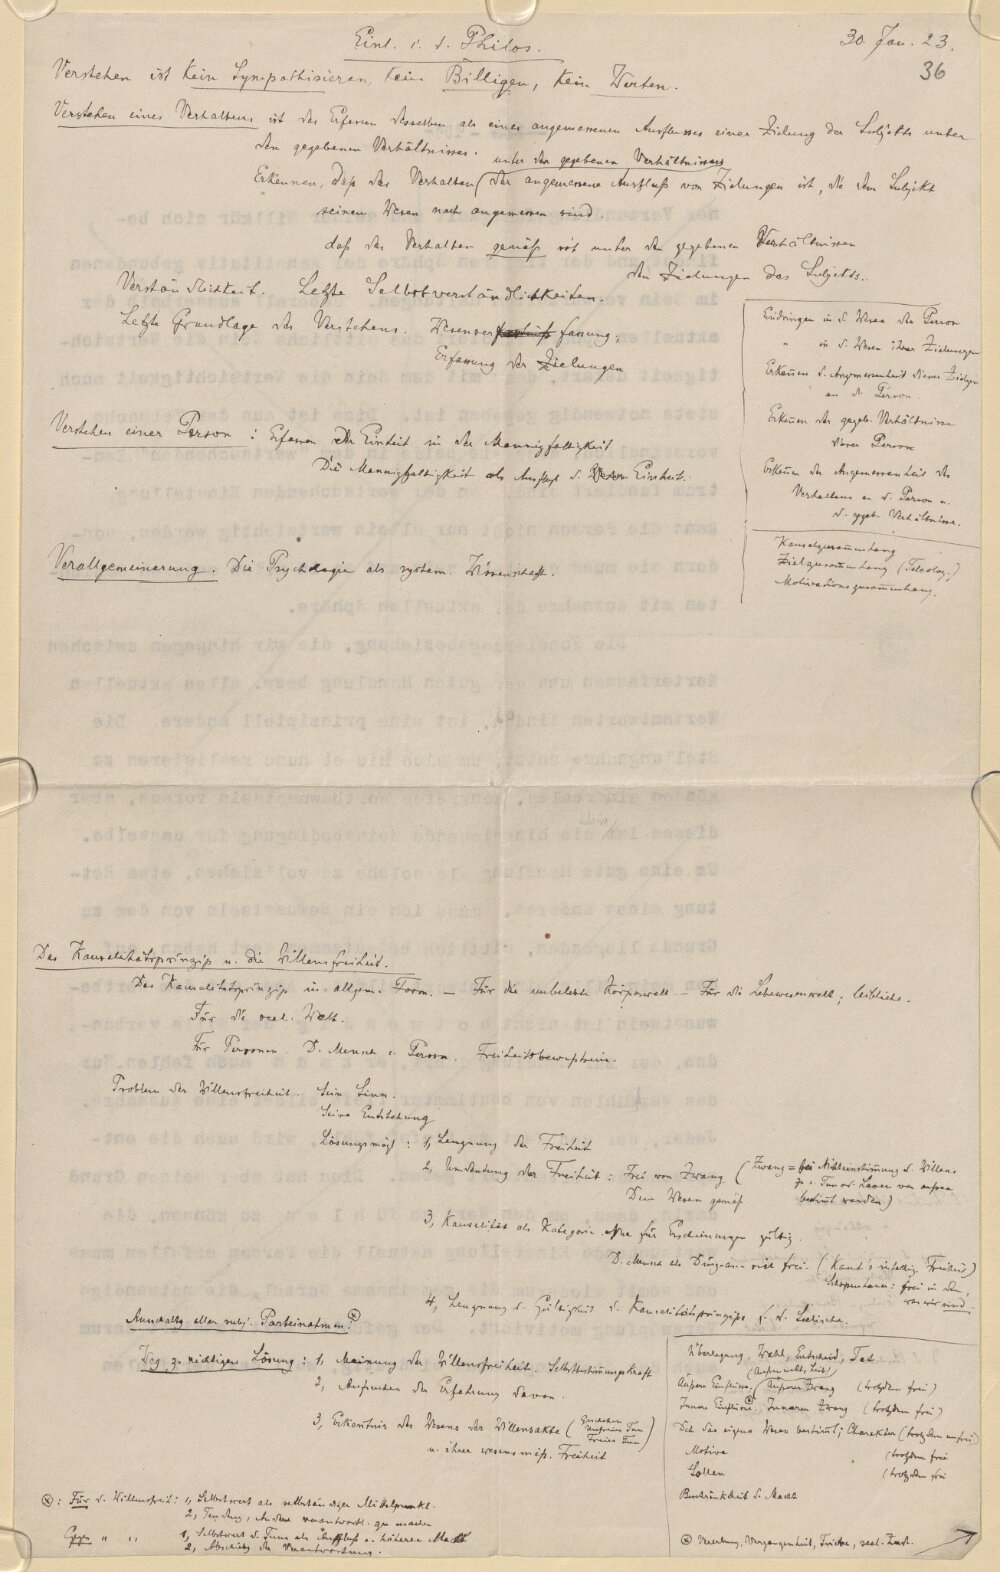 Einl. i. d. Philos.
30. Jan. 23.
36
Verstehen ist kein Sympathisieren, kein Billigen, kein Werten.
Verstehen eines Verhaltens ist das Erfassen desselben als eines angemessenen Ausflusses einer Zielung des Subjekts unter
den gegebenen Verhältnissen.
unter den gegebenen Verhältnissen
Erkennen, daß das Verhalten der angemessene Ausfluß von Zielungen ist, die dem Subjekt
seinem Wesen nach angemessen sind.
daß das Verhalten gemäß ist unter den gegebenen Verhältnissen
den Zielungen des Subjekts.
Verständlichkeit. Letzte Selbstverständlichkeiten.
Letzte Grundlage des Verstehens. Wesenserfassung.
Erfassung der Zielungen
Eindringen in d. Wesen der Person
" in d. Wesen ihrer Zielungen
Erkennen d. Angemessenheit dieser Zielgen
an d. Person.
Erkennen der gegeb. Verhältnisse
dieser Person
Erkennen der Angemessenheit des
Verhaltens an d. Person u.
d. gegeb. Verhältnisse.
Kausalzusammenhang
Zielzusammenhang (Teleolog.)
Motivationszusammenhang.
Verstehen einer Person: Erfassen der Einheit in der Mannigfaltigkeit
Die Mannigfaltigkeit als Ausfluß d. Einheit.
Verallgemeinerung. Die Psychologie als system. Wissenschaft.
Das Kausalitätsprinzip u. die Willensfreiheit.
Das Kausalitätsprinzip in allgem. Form. — Für die unbelebte Körperwelt. — Für die Lebewesenwelt; leibliche.
Für die seel. Welt.
Für Personen. D. Mensch i. Person. Freiheitsbewußtsein.
Problem der Willensfreiheit. Sein Sinn.
Seine Entstehung
Lösungsmögl.: 1, Leugnung der Freiheit
2, Umdeutung der Freiheit: Frei von Zwang
(Zwang = bei Nichteinstimmung d. Willens
z. e. Tun od. Lassen von aussen
bestimmt werden)
Dem Wesen gemäß
3, Kausalität als Kategorie nur für Erscheinungen gültig.
D. Mensch als Ding an sich frei. (Kant's intellig. Freiheit)
Schopenhauer: frei in dem,
was wir sind.
4, Leugnung d. Gültigkeit d. Kausalitätsprinzips f. d. Seelische.
Ausschaltg aller Parteinahmen.
Weg z. richtigen Lösung: 1, Meinung der Willensfreiheit. Selbstbestimmungskraft
2, Aufsuchen der Erfahrung davon.
3, Erkenntnis des Wesens der Willensakte (Geschehen
Unfreies Tun
Freies Tun)
u. ihrer wesensmäß. Freiheit
Überlegung, Wahl, Entscheid, Tat.
(Außenwelt, Leib)
Äußere Einflüsse. Äußerer Zwang (trotzdem frei)
Innere Einflüsse. Innerer Zwang (trotzdem frei)
Det das eigene Wesen bestimt; Charakter (trotzdem unfrei)
Motive (trotzdem frei
Sollen (trotzdem frei
Beschränktheit d. Macht
Vererbung, Vergangenheit, Triebe, seel. Zust.
Für d. Willensfreih.: 1, Selbstwert als selbständiger Mittelpunkt.
2, Tendenz, Andere verantwortl. zu machen
Gegen " " 1, Selbstwert d. Tuns als Ausfluß e. höheren Macht
2, Abschütz der Verantwortung.